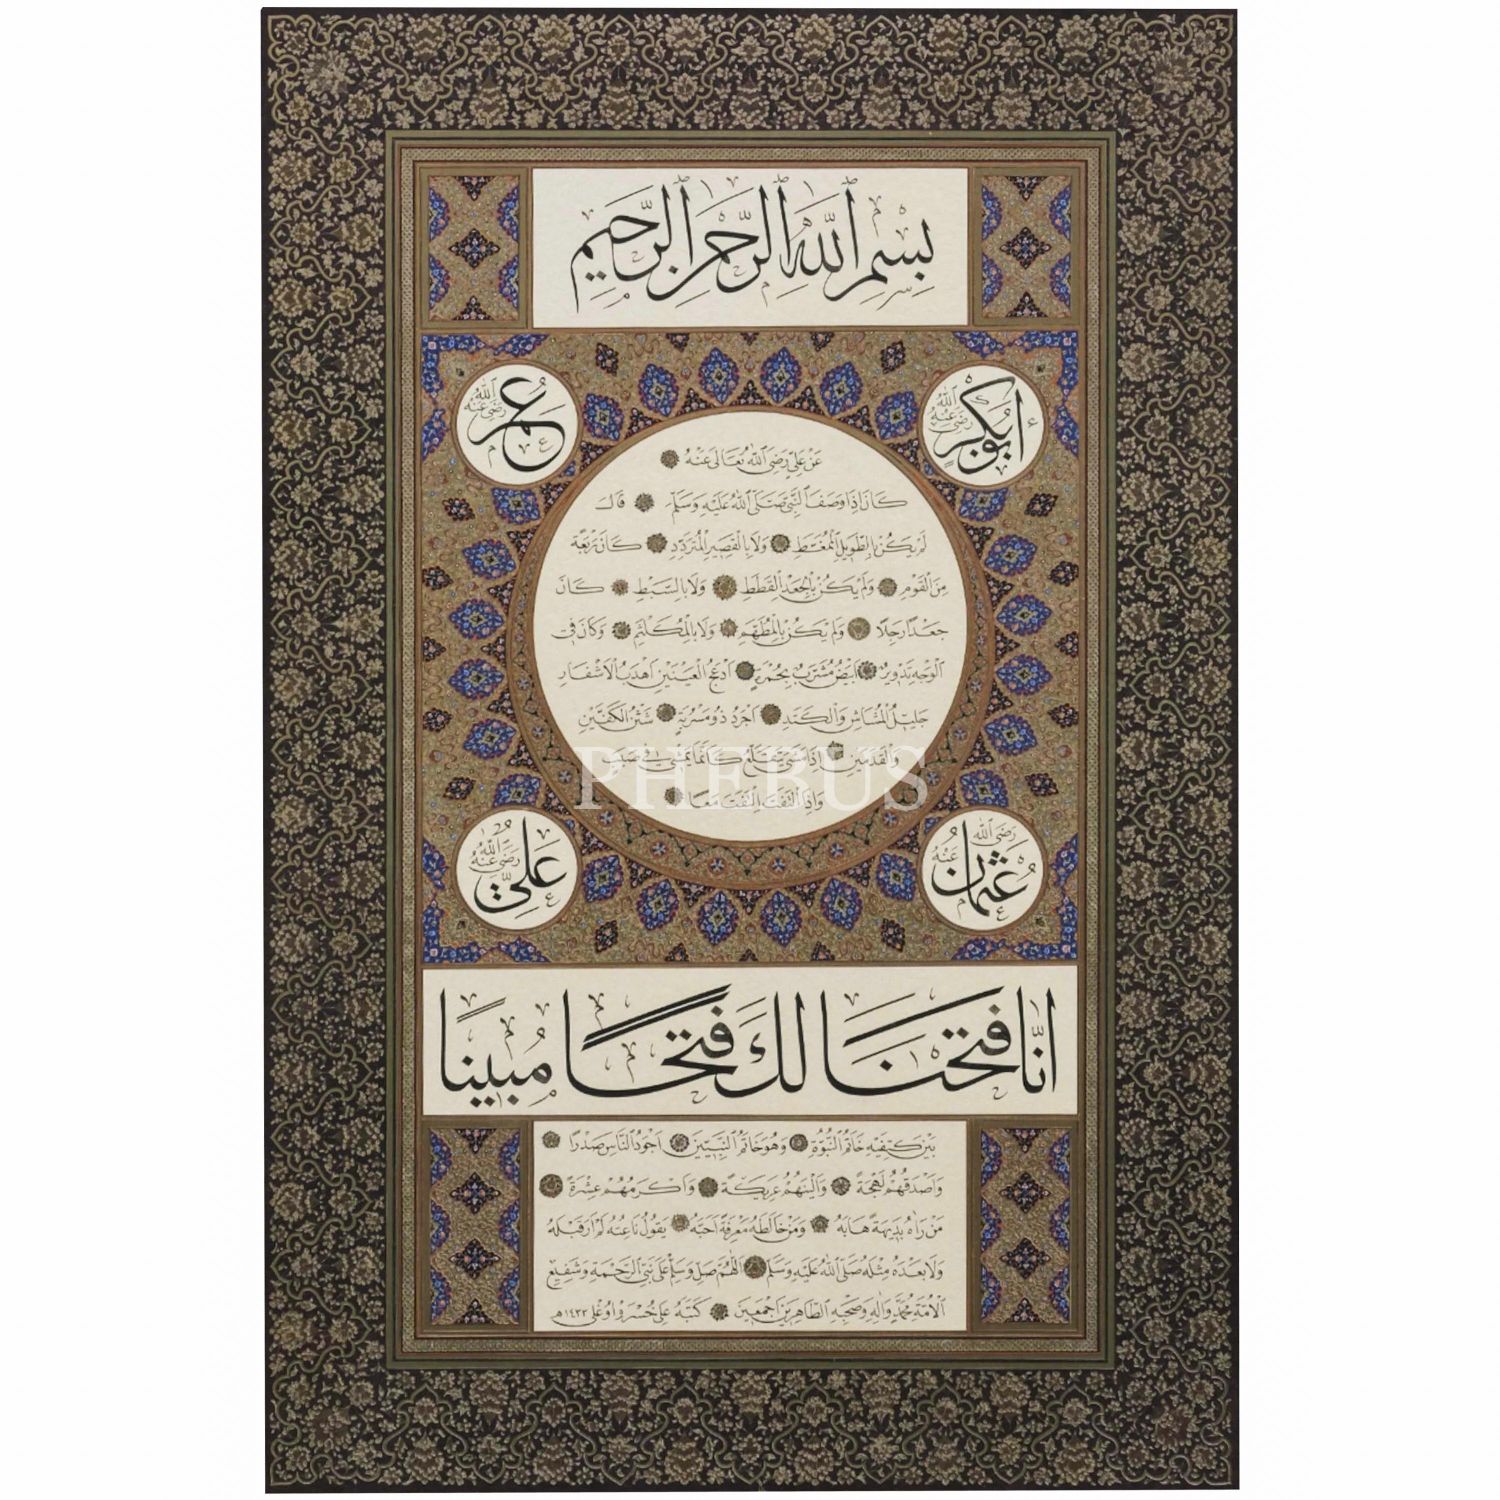 بِسْمِ اللّٰهِ الرَّحْمٰنِ الرَّحِيمِ
ابُوبَكْرٍ رَضِيَ اللّٰهُ عَنْهُ
عُمَرُ رَضِيَ اللّٰهُ عَنْهُ
عَنْ عَلِيٍّ رَضِيَ اللّٰهُ تَعَالٰى عَنْهُ
كَانَ اِذَا وَصَفَ النَّبِيَّ صَلَّى اللّٰهُ عَلَيْهِ وَسَلَّمَ قَالَ
لَمْ يَكُنْ بِالطَّوِيلِ الْمُمَّغِطِ وَلَا بِالْقَصِيرِ الْمُتَرَدِّدِ كَانَ رَبْعَةً
مِنَ الْقَوْمِ وَلَمْ يَكُنْ بِالْجَعْدِ الْقَطَطِ وَلَا بِالسَّبِطِ كَانَ
جَعْدًا رَجِلًا وَلَمْ يَكُنْ بِالْمُطَهَّمِ وَلَا بِالْمُكَلْثَمِ وَكَانَ فِي
الْوَجْهِ تَدْوِيرٌ اَبْيَضُ مُشْرَبٌ بِحُمْرَةٍ اَدْعَجُ الْعَيْنَيْنِ اَهْدَبُ الْاَشْفَارِ
جَلِيلُ الْمُشَاشِ وَالْكَتَدِ اَجْرَدُ ذُو مَسْرُبَةٍ شَثْنُ الْكَفَّيْنِ
وَالْقَدَمَيْنِ اِذَا مَشٰى تَقَلَّعَ كَاَنَّمَا يَمْشِي فِي صَبَبٍ
وَاِذَا الْتَفَتَ الْتَفَتَ مَعًا
PHEBUS
عُثْمَانُ رَضِيَ اللّٰهُ عَنْهُ
عَلِيٌّ رَضِيَ اللّٰهُ عَنْهُ
اِنَّا فَتَحْنَا لَكَ فَتْحًا مُبِينًا
بَيْنَ كَتِفَيْهِ خَاتَمُ النُّبُوَّةِ وَهُوَ خَاتَمُ النَّبِيِّينَ اَجْوَدُ النَّاسِ صَدْرًا
وَاَصْدَقُهُمْ لَهْجَةً وَاَلْيَنُهُمْ عَرِيكَةً وَاَكْرَمُهُمْ عِشْرَةً
مَنْ رَاٰهُ بَدِيهَةً هَابَهُ وَمَنْ خَالَطَهُ مَعْرِفَةً اَحَبَّهُ يَقُولُ نَاعِتُهُ لَمْ اَرَ قَبْلَهُ
وَلَا بَعْدَهُ مِثْلَهُ صَلَّى اللّٰهُ عَلَيْهِ وَسَلَّمَ اَللّٰهُمَّ صَلِّ وَسَلِّمْ عَلٰى نَبِيِّ الرَّحْمَةِ وَشَفِيعِ
الْاُمَّةِ مُحَمَّدٍ وَاٰلِهِ وَصَحْبِهِ الطَّاهِرِينَ اَجْمَعِينَ كَتَبَهُ عَلِي خُسْرَوْ اُوغْلِي ١٤٣٣هـ